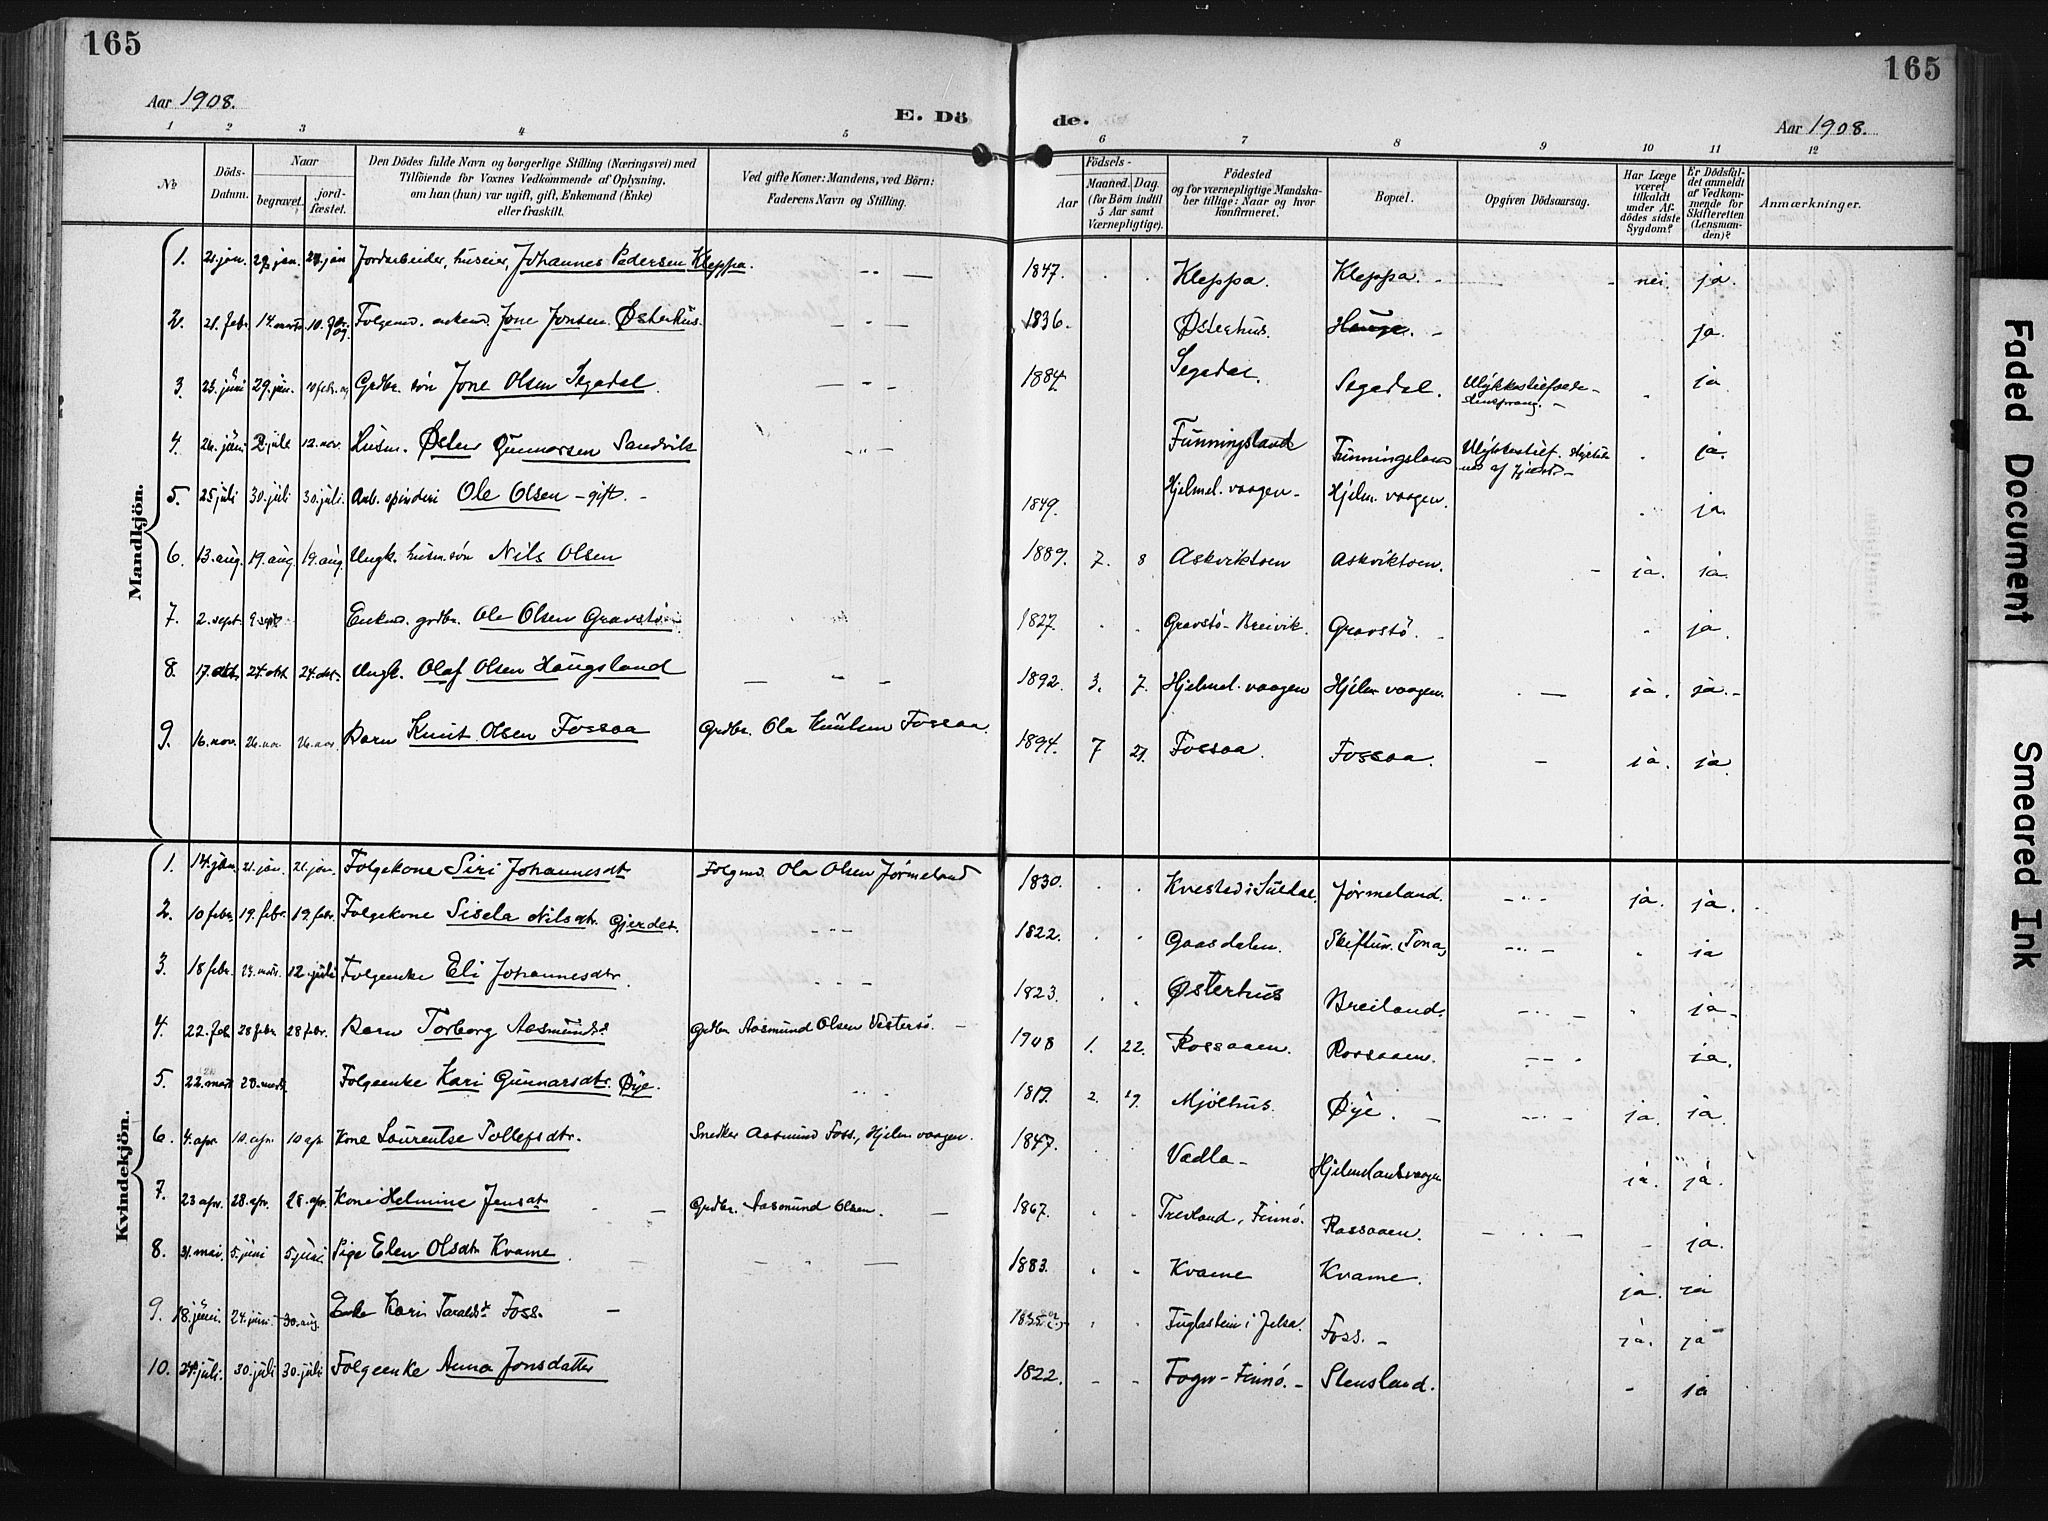 165
165
Aar 1908.
E. Dö
de.
Aar 1908.
1 2 3 4 5 6 7 8 9 10 11 12
No
Döds-Datum.
Naar
begravet.
jord-fæstet.
Den Dödes fulde Navn og borgerlige Stilling (Næringsvei) med
Tilföiende for Voxnes Vedkommende af Oplysning,
om han (hun) var ugift, gift, Enkemand (Enke)
eller fraskilt.
Ved gifte Koner: Mandens, ved Börn:
Faderens Navn og Stilling.
Födsels-
Aar
Maaned. Dag.
(for Börn indtil
5 Aar samt
Værnepligtige).
Födested
og for værnepligtige Mandska-
ber tillige: Naar og hvor
konfirmeret.
Bopæl.
Opgiven Dödsaarsag.
Har Læge
været
tilkaldt
under Af-
dödes sidste
Sygdom?
Er Dödsfal-
det anmeldt
af Vedkom-
mende for
Skifteretten
(Lensman-
den)?
Anmærkninger.
Mandkjön.
1. 21. jan. jan. jan Jordarbeider, huseier, Johannes Pedersen Kleppa. 1847. Kleppa. Kleppa. nei. ja.
2. 21. febr. 14. marts Folgemd. enkemd. Jone Jonsen Østerhus. 1836. Østerhus. Hauge. ja.
3 23. juni 29. jun. Grdbr. søn Jone Olsen Segadal. 1884 Segadal. Segadal. ja
4. 26. juni 2 juli 12. nov. Husm. Østen Gunnarsen Sandvik Funningsland Funningsland ja.
5. 25 juli 30. juli 30. juli. Arb. spinderi Ole Olsen - gift. - 1849. Hjelmel. vaagen - Hjelm. vaagen. ja.
6. 13. aug. 19. aug. 19. aug. Ungk. husm. søn Nils Olsen 1889. 7. 8 Askviktoen Askviktoen. ja. ja.
7. 2. sept. 9 sept. Enkmd. grdbr. Ole Olsen Gravstø 1827. Gravstø - Breivik. Gravstø. ja.
8. 17. okt. 24. okt 24. okt. Ungk. Olaf Olsen Haugsland 1892. 3. 7. Hjelmel. vaagen Hjelm vaagen. ja. ja.
9. 16. nov. 26. nov 26. nov. Barn Knut Olsen Fossaa Grdbr. Ola Knutsen Fossaa. 1894. 7 21. Fossaa. Fossaa. ja. ja.
Kvindekjön.
1. 14. jan. 21. jan. 21. jan. Folgekone Siri Johannesdtr Folgmd. Ola Olsen Jørmeland 1830. Kvested i Suldal. Jørmeland. ja. ja.
2. 10 febr. 19. febr. 19. febr. Folgekone Sisela Nilsdtr. Gjerdet. 1822. Gaasdalen. Skiftun. (Tona) ja
3. 18 febr. 12. juli Folgeenke Eli Johannesdtr. 1823. Østerhus Breiland. ja
4. 22. feb 28 febr. 28 febr. Barn Torborg Aasmundsd Grdbr Aasmund Olsen Vestersø. 1908 1. 22. Rossaaen. Rossaaen. ja.
5. 22. mars 28. marts. Folgeenke Kari Gunnarsdtr. Øye. 1819. 2. 19. Mjølhus. Øye. ja. ja.
6. 4. apr. 10. apr. 10 apr. Kone Laurentse Tollefsdtr. Snedker Aasmund Foss, Hjelm. vaagen. 1847. Vadla - Hjelmelandsvaagen ja. ja.
7. 23 apr. 28. apr. 28. apr. Kone Helmine Jensdtr Grdbr. Aasmund Olsen. 1867. Finnø. Rossaaen. ja.
8. 31. mai. 5. juni 5 juni Pige Elen Olsdtr Kvame. 1883. Kvame Kvame. ja. ja
9. 18. juni. 24. juni. 30. aug. Enke Kari Taraldsdr Foss. Fuglastein i Jelsa. Foss. - ja. ja
10. juli. 30. juli 30. juli Folgeenke Anna Jonsdatter 1822. Fogn - Finnø. - Stensland. ja
Faded Document
Smeared Ink